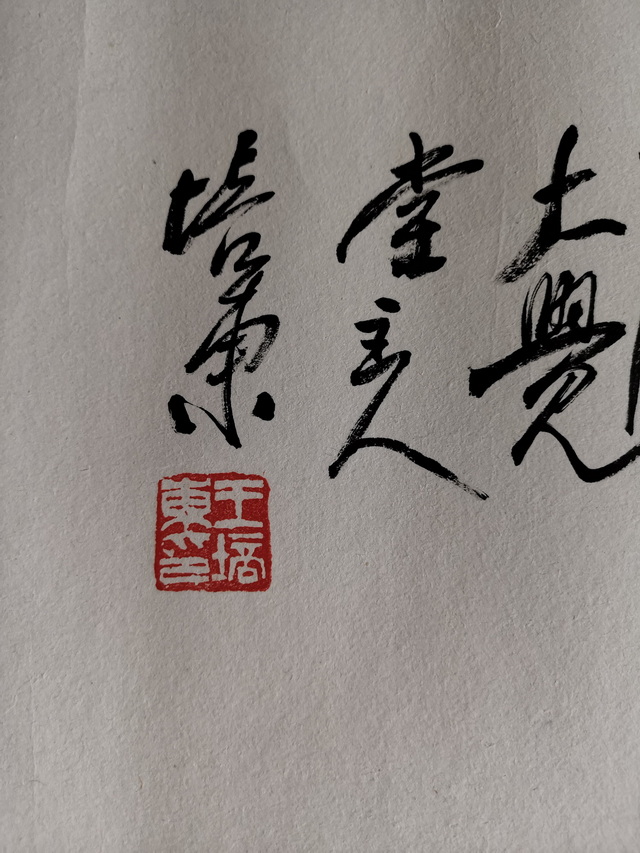 大覺
堂主人
培東
王培東印